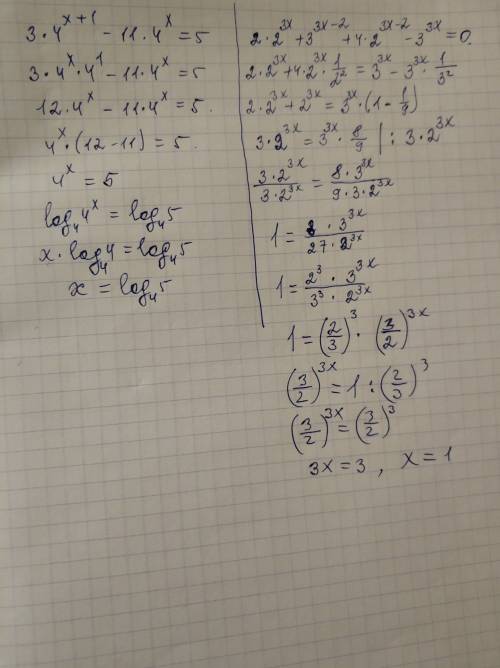 3·4^(x+1) - 11·4^x = 5
3·4^x·4^1 - 11·4^x = 5
12·4^x - 11·4^x = 5.
4^x·(12-11) = 5.
4^x = 5
log₄4^x = log₄5
x·log₄4 = log₄5
x = log₄5
2·2^(3x) + 3^(3x-2) + 4·2^(3x-2) - 3^(3x) = 0.
2·2^(3x) + 4·2^(3x)·1/2² = 3^(3x) - 3^(3x)·1/3²
2·2^(3x) + 2^(3x) = 3^(3x)·(1 - 1/9)
3·2^(3x) = 3^(3x)·8/9 | : 3·2^(3x)
3·2^(3x)/3·2^(3x) = 8·3^(3x)/9·3·2^(3x)
1 = 8·3^(3x)/27·2^(3x)
1 = 2³·3^(3x)/3³·2^(3x)
1 = (2/3)³·(3/2)^(3x)
(3/2)^(3x) = 1 : (2/3)³
(3/2)^(3x) = (3/2)³
3x = 3, x = 1